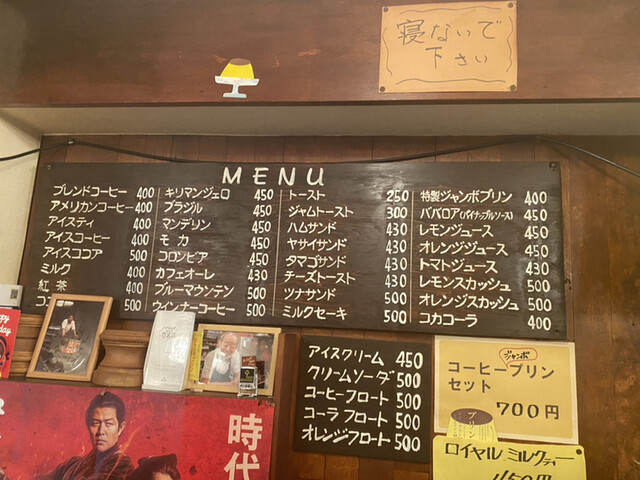 寝ないで
下さい
MENU
ブレンドコーヒー 400
アメリカンコーヒー 400
アイスティ 400
アイスコーヒー 400
アイスココア 500
ミルク 400
紅茶 400
500
キリマンジェロ 450
ブラジル 450
マンデリン 450
モカ 450
コロンビア 450
カフェオーレ 430
ブルーマウンテン 500
ウィンナーコーヒー 500
トースト 250
ジャムトースト 300
ハムサンド 430
ヤサイサンド 430
タマゴサンド 430
チーズトースト 430
ツナサンド 500
ミルクセーキ 500
特製ジャンボプリン 400
ババロア(パイナップルソース) 450
レモンジュース 430
オレンジジュース 450
トマトジュース 430
レモンスカッシュ 500
オレンジスカッシュ 500
コカコーラ 400
アイスクリーム 450
クリームソーダ 500
コーヒーフロート 500
コーラフロート 500
オレンジフロート 500
ジャンボ
コーヒープリン
セット
700円
プリン
ロイヤルミルクティー
450円
時代